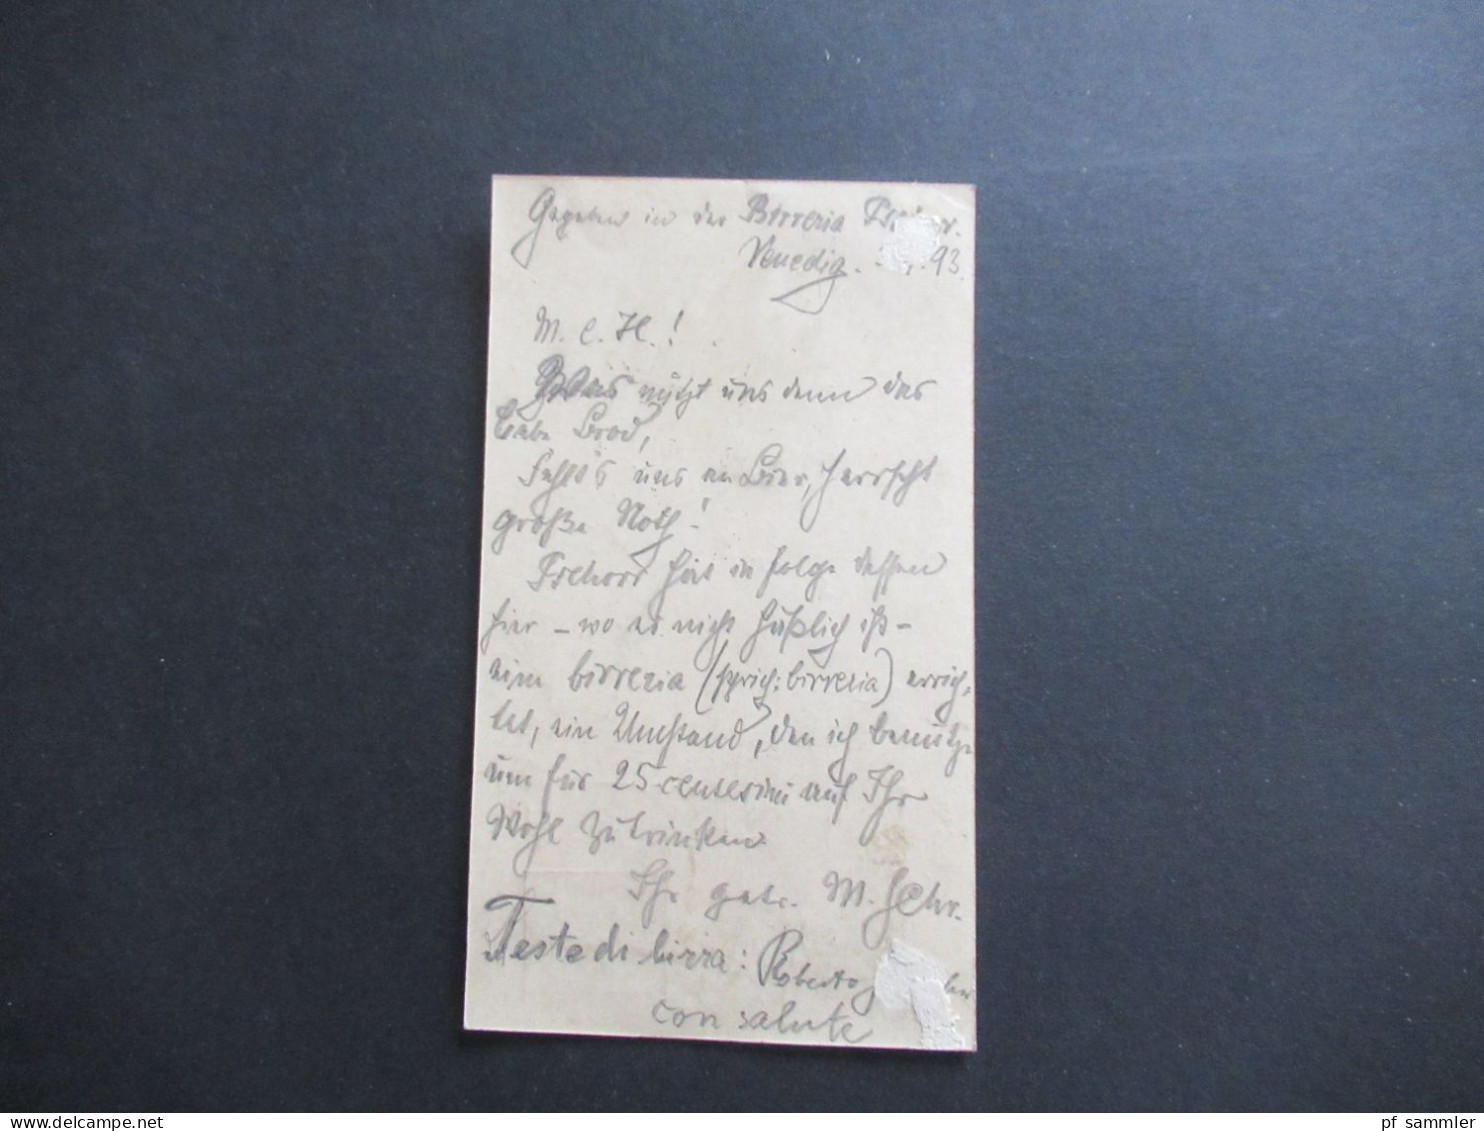 Gegeben in der Birreria
Venedig. 93.
M. l. H.!
Was nützt uns denn das
liebe Brod,
Fehlt's uns an Bier, herrscht
große Noth!
Pschorr hat in folge dessen
hier – wo es nicht häßlich ist –
eine birreria (sprich: birreria) errich-
tet, ein Umstand, den ich benütze
um für 25 centesimi auf Ihr
Wohl zu trinken
Ihr getr. M.
Teste di birra: Roberto
con salute
pf sammler
delcampe.net